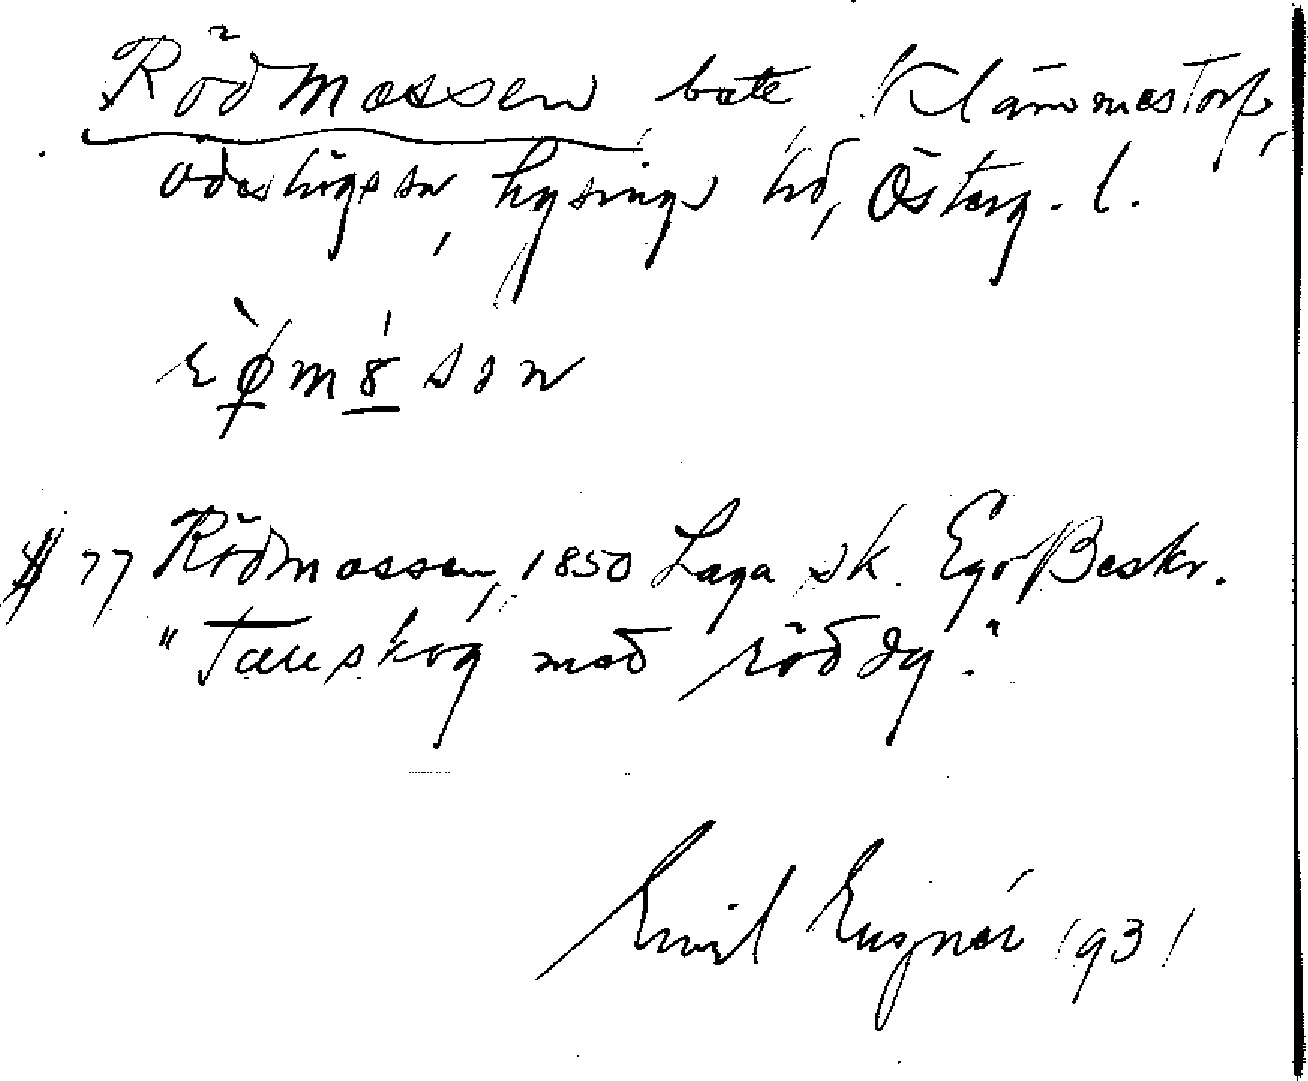 Rödmossen, bete, Klämmestorp,
Ödeshögs sn, Lysings hd, Österg. l.
rø̀mósən
§ 77 Rödmossen, 1850 Laga sk. Ego Beskr.
"Tallskog med röd dy."
Emil Eugnér 1931